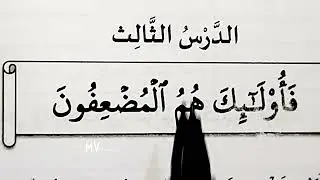 الدَّرْسُ الثَّالِث
فَأُوْلَٰٓئِكَ هُمُ ٱلْمُضْعِفُونَ
MV